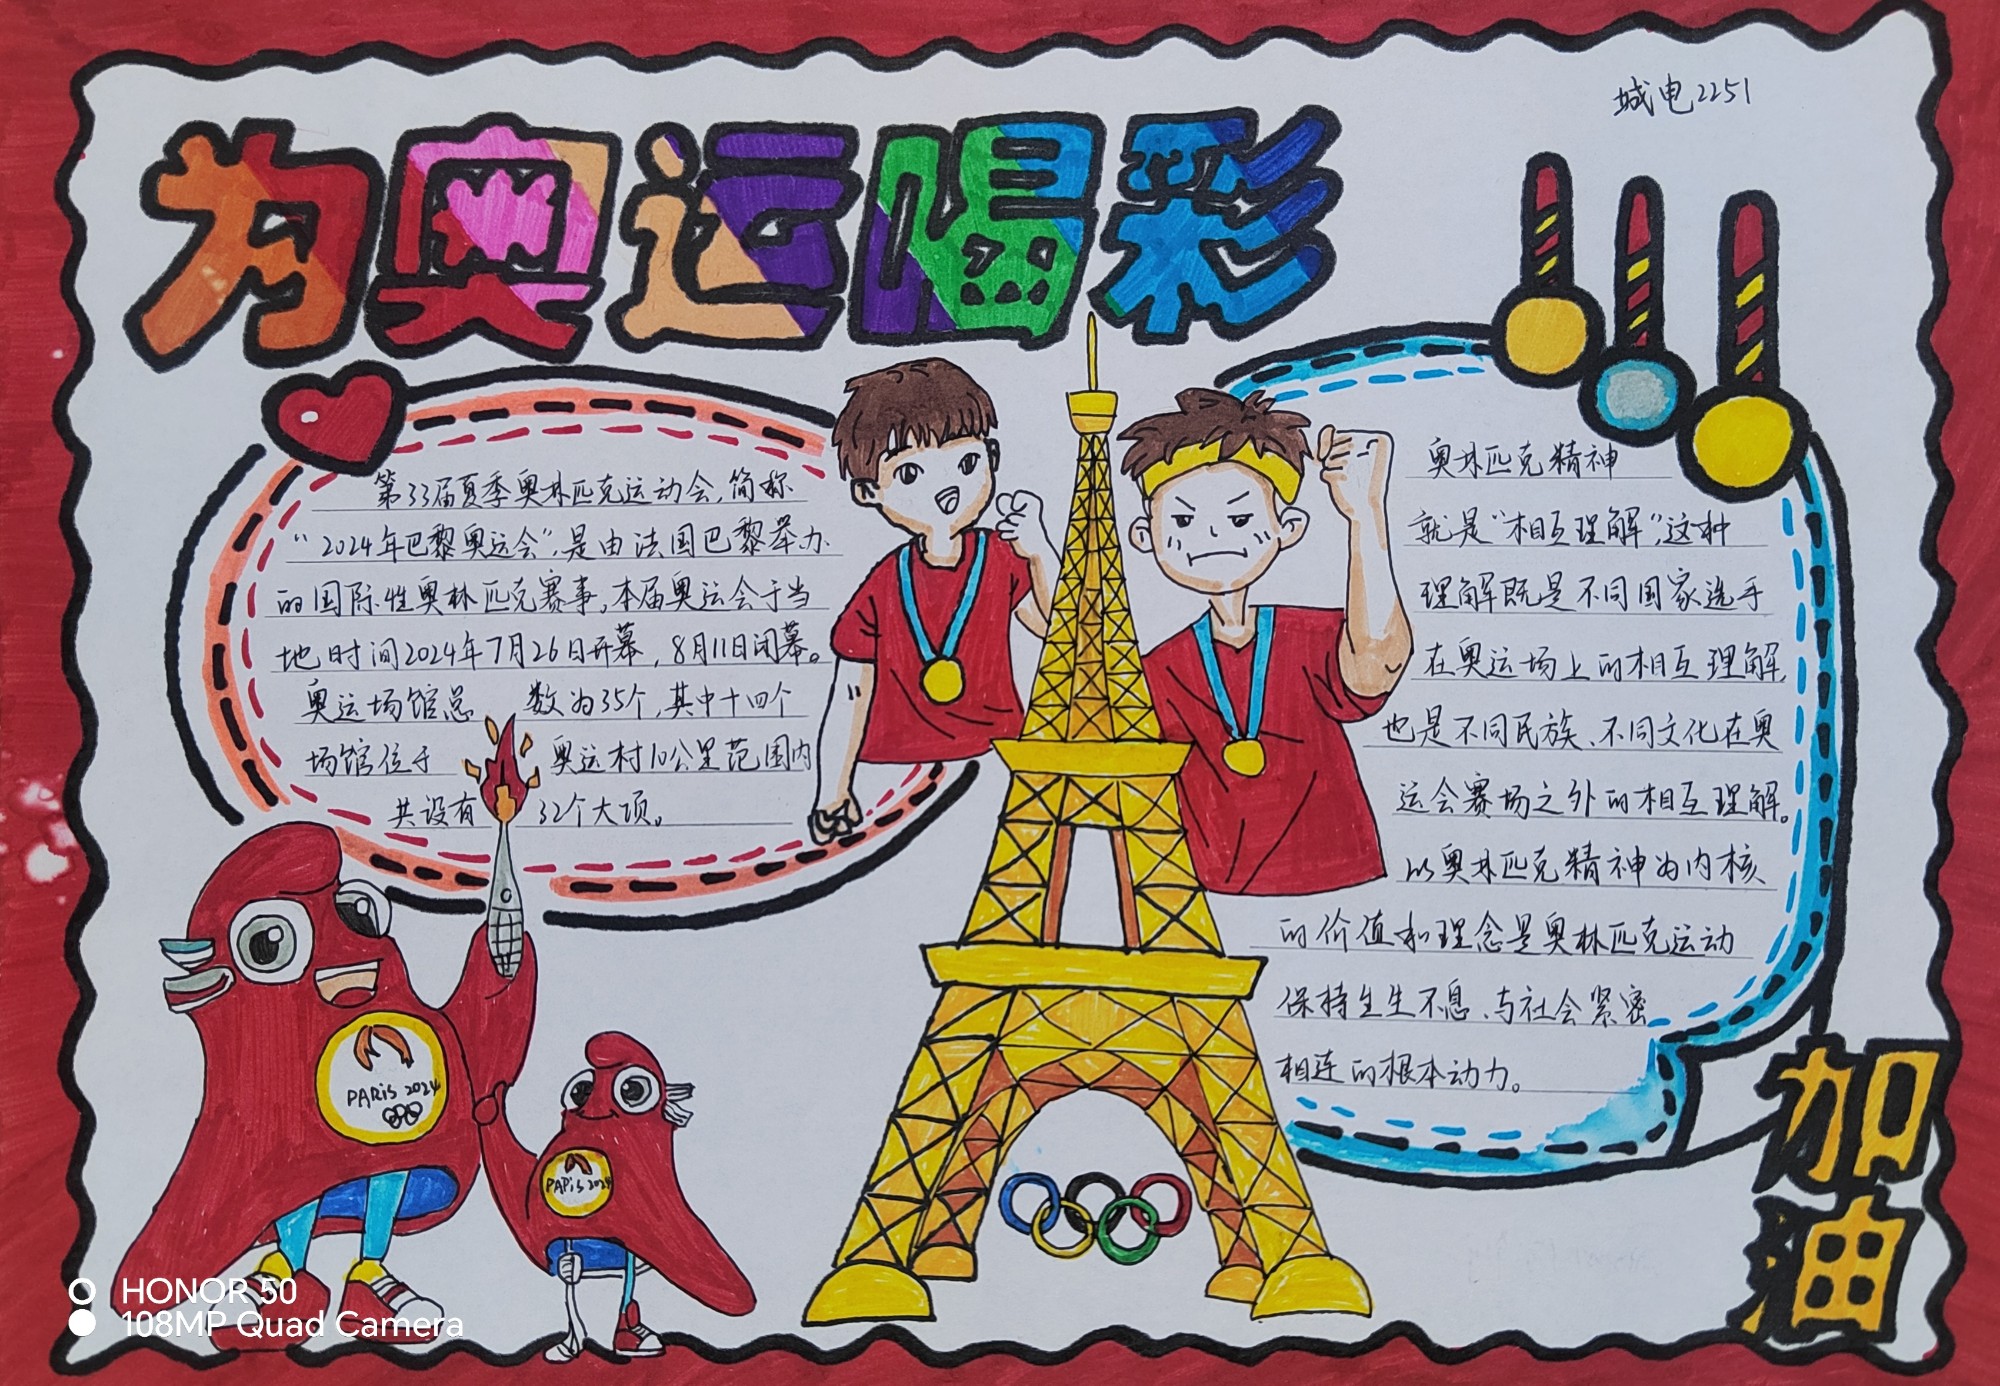 城电2251
为奥运喝彩
第33届夏季奥林匹克运动会,简称
“2024年巴黎奥运会”,是由法国巴黎举办
的国际性奥林匹克赛事,本届奥运会于当
地时间2024年7月26日开幕,8月11日闭幕。
奥运场馆总 数为35个,其中十四个
场馆位于 奥运村10公里范围内
共设有 32个大项。
奥林匹克精神
就是“相互理解”,这种
理解既是不同国家选手
在奥运场上的相互理解,
也是不同民族、不同文化在奥
运会赛场之外的相互理解。
以奥林匹克精神为内核
的价值和理念是奥林匹克运动
保持生生不息、与社会紧密
相连的根本动力。
PARiS 2024
PARiS 2024
加油
HONOR 50
108MP Quad Camera